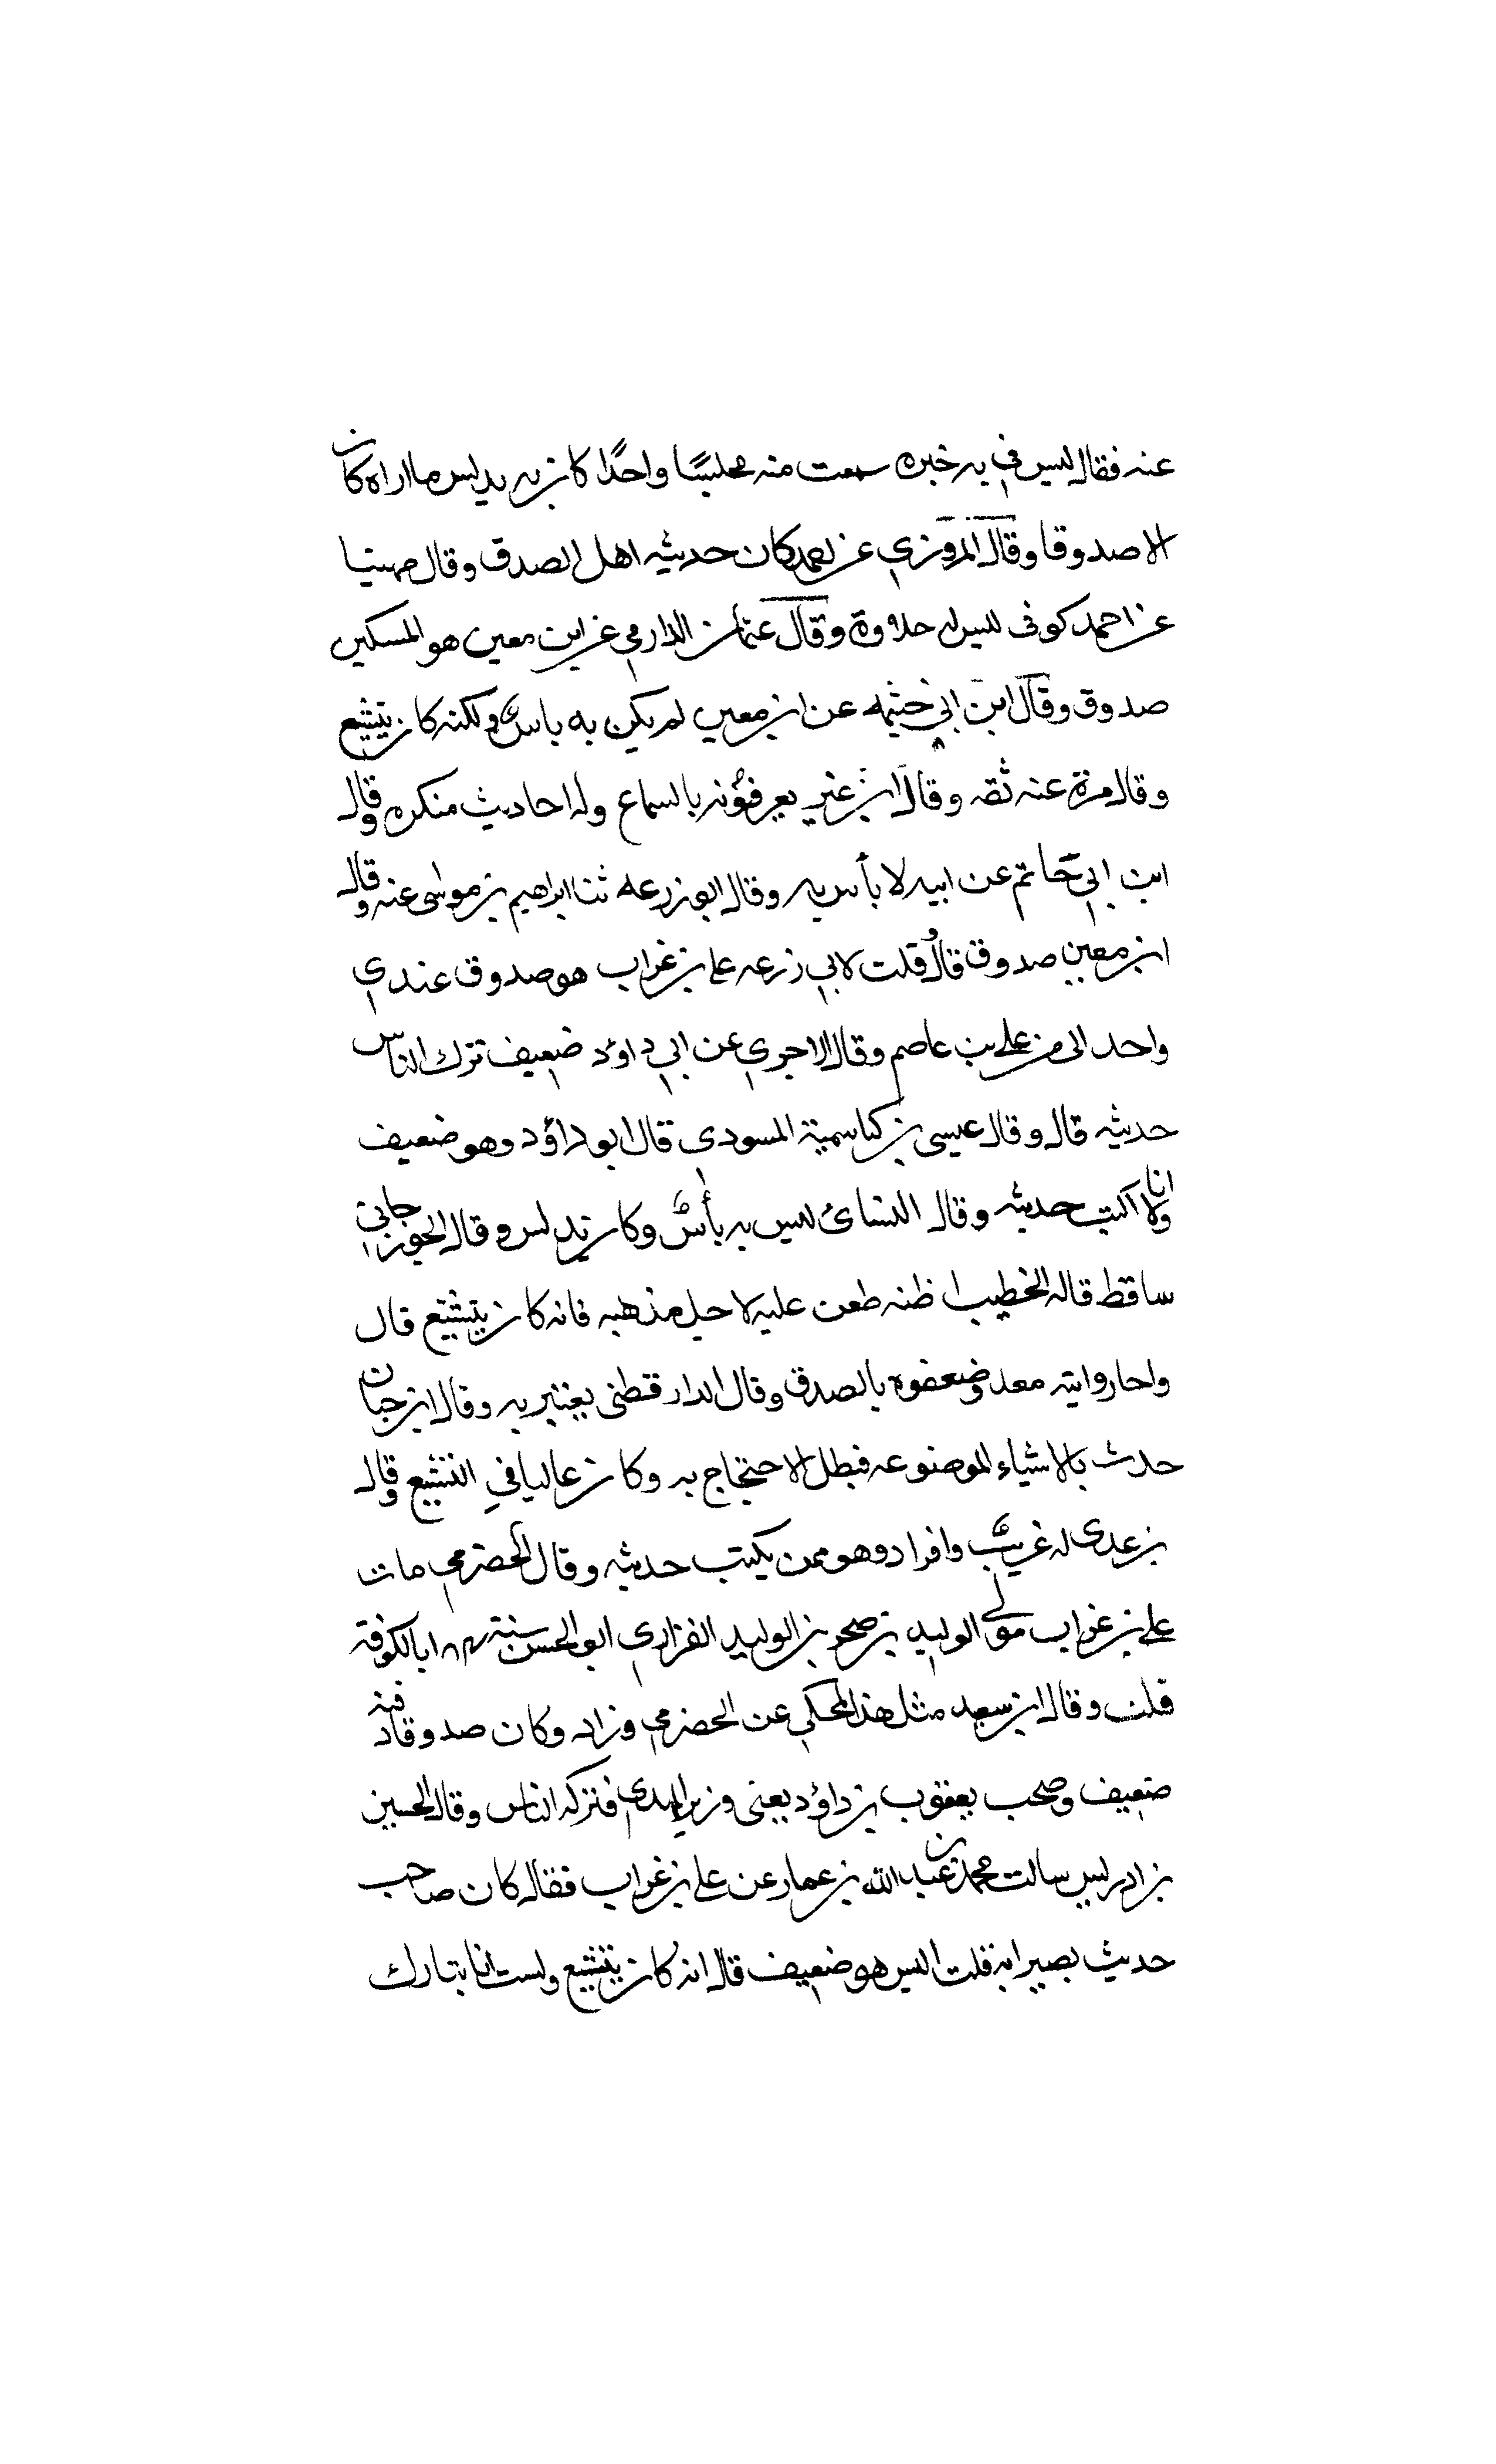 عنه فقال ليس في به خبره سمعت منه مجلسًا واحدًا كان به يدلس ما اراه كان
الا صدوقا وقال المروزي عن احمد كان حديثه اهل الصدق وقال مهنيا
عن احمد كوفى ليس له حلاوة وقال عثمان الدارمي عن ابن معين هو المسكين
صدوق وقال ابن ابي خثيمه عن ابن معين لم يكن به باسٌ ولكنه كان يتشيع
وقال مرة عنه ثقه وقال ابن نمير يعرفونه بالسماع وله احاديث منكره وقال
ابن ابي حاتم عن ابيه لا بأس به وقال ابو زرعه ثنا ابراهيم بن موسى عنه وقال
ابن معين صدوق قال قلت لابي زرعه على بن غراب هو صدوق عندي
واحد الى من على بن عاصم وقال الاجري عن ابي داؤد ضعيف ترك الناس
حديثه قال وقال عيسى بن كنا سميته المسودى قال ابو داؤد وهو ضعيف
وانا لا اكتب حديثه وقال النسائ ليس به بأسٌ وكان يدلس وقال الجوزجاني
ساقط قاله الخطيب اظنه طعن عليه لاحل مذهبه فانه كان يتشيّع قال
واحا روايته معد وضعفوه بالصدق وقال الدارقطنى يعتبر به وقال ابن حبان
حدث بالاشياء الموضوعه فبطل الاحتجاج به وكان عاليا في التشيع وقال
بن عدى له غريبٌ وافراد وهو ممن يكتب حديثه وقال الحضرمي مات
على بن غراب مولى الوليد بن صخر بن الوليد الفزاري ابو الحسن سنة ١٨٤ بالكوفة
قلت وقال ابن سعد مثل هذا المحكي عن الحضرمي وزاد وكان صدوقا وفيه
ضعيف وصحب يعقوب بن داؤد يعنى وزير المهدي فتركه الناس وقال الحسين
بن ادريس سالت محمد بن عبد الله بن عمار عن على بن غراب فقال كان صاحب
حديث بصير ابه قلت اليس هو ضعيف قال انه كان يتشيع ولست انا بتارك